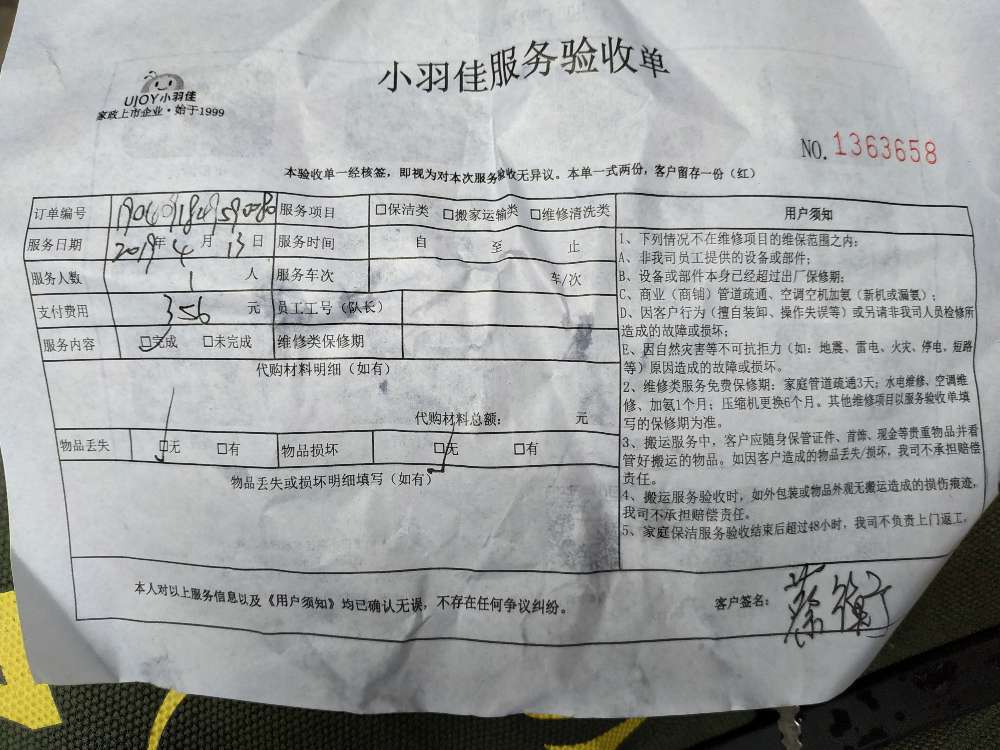 小羽佳服务验收单
UJOY小羽佳
家政上市企业·始于1999
NO. 1363658
本验收单一经核签，即视为对本次服务验收无异议。本单一式两份，客户留存一份（红）
订单编号 服务项目 □保洁类 □搬家运输类 □维修清洗类 用户须知
服务日期 2019年4月13日 服务时间 自 至 止
服务人数 1 人 服务车次 车/次
支付费用 356 元 员工工号（队长）
服务内容 □完成 □未完成 维修类保修期
代购材料明细（如有）
代购材料总额： 元
物品丢失 □无 □有 物品损坏 □无 □有
物品丢失或损坏明细填写（如有）
1、下列情况不在维修项目的维保范围之内：
A、非我司员工提供的设备或部件；
B、设备或部件本身已经超过出厂保修期；
C、商业（商铺）管道疏通、空调空机加氨（新机或漏氨）；
D、因客户行为（擅自装卸、操作失误等）或另请非我司人员检修所
造成的故障或损坏；
E、因自然灾害等不可抗拒力（如：地震、雷电、火灾、停电、短路
等）原因造成的故障或损坏。
2、维修类服务免费保修期：家庭管道疏通3天；水电维修、空调维
修、加氨1个月；压缩机更换6个月。其他维修项目以服务验收单填
写的保修期为准。
3、搬运服务中，客户应随身保管证件、首饰、现金等贵重物品并看
管好搬运的物品。如因客户造成的物品丢失/损坏，我司不承担赔偿
责任。
4、搬运服务验收时，如外包装或物品外观无搬运造成的损伤痕迹，
我司不承担赔偿责任。
5、家庭保洁服务验收结束后超过48小时，我司不负责上门返工。
本人对以上服务信息以及《用户须知》均已确认无误，不存在任何争议纠纷。
客户签名：